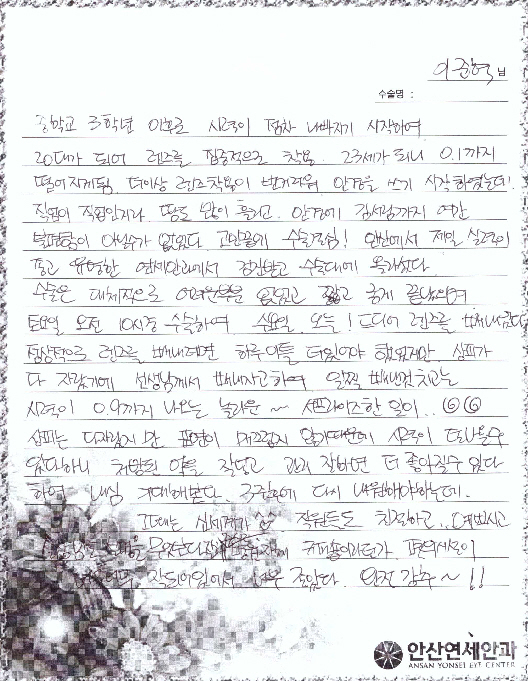 이준혁 님
수술명 :
중학교 3학년 이후로 시력이 점차 나빠지기 시작하여
20대가 되어 렌즈를 집중적으로 착용. 23세가 되니 0.1까지
떨어지게됨. 더이상 렌즈착용이 번거로워 안경을 쓰기 시작하였는데!
직업이 직업인지라. 땀도 많이 흘리고. 안경에 김서림까지 여간
불편함이 아닐수가 없었다. 고민끝에 수술결심! 안산에서 제일 실력이
좋고 유명한 연세안과에서 검진받고 수술대에 올라섰다.
수술은 대체적으로 어려움 없었고 짧고 굵게 끝났으며
토요일 오전 10시경 수술하여 수요일 오늘! 드디어 렌즈를 빼내었다
정상적으로 렌즈를 빼내려면 하루이틀 더있어야 했었지만 상피가
다 자랐기에 선생님께서 빼내자고하여 일찍 빼내었
시력이 0.9까지 나오는 놀라운 ~ 써프라이즈한 일이..
상피는 다자랐지만 표면이 매끄럽지 않기때문에 시력이 더나올수
있다하니 처방된 약을 잘넣고 관리 잘하면 더 좋아질수 있다
하여 내심 기대해본다. 3주후에 다시 내원해야하는데.
그때는 직원들도 친절하고, 예쁘시고
커피숍이라던가
잘되어있어서 너무 좋았다. 완전 강추~!!
안산연세안과
ANSAN YONSEI EYE CENTER